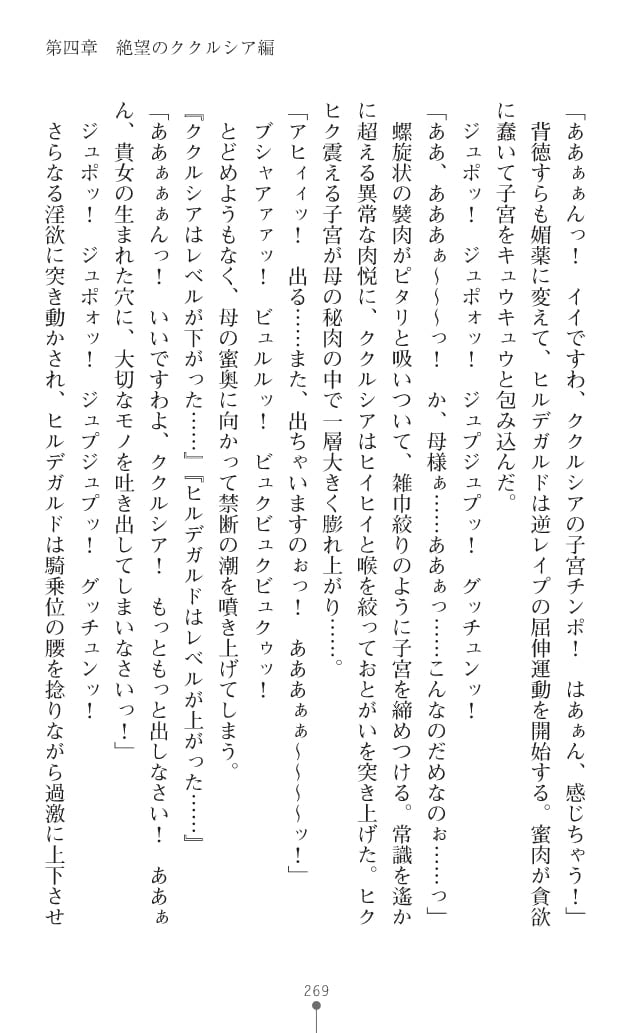 第四章　絶望のククルシア編
「ああぁぁんっ！　イイですわ、ククルシアの子宮チンポ！　はあぁん、感じちゃう！」
　背徳すらも媚薬に変えて、ヒルデガルドは逆レイプの屈伸運動を開始する。蜜肉が貪欲
に蠢いて子宮をキュウキュウと包み込んだ。
　ジュポッ！　ジュポォッ！　ジュプジュプッ！　グッチュンッ！
「ああ、あああぁ～～～っ！　か、母様ぁ……ああぁっ……こんなのだめなのぉ……っ」
　螺旋状の襞肉がピタリと吸いついて、雑巾絞りのように子宮を締めつける。常識を遙か
に超える異常な肉悦に、ククルシアはヒイヒイと喉を絞っておとがいを突き上げた。ヒク
ヒク震える子宮が母の秘肉の中で一層大きく膨れ上がり……。
「アヒィィッ！　出る……また、出ちゃいますのぉっ！　あああぁぁ～～～～ッ！」
　ブシャアァァッ！　ビュルルッ！　ビュクビュクゥッ！
　とどめようもなく、母の蜜奥に向かって禁断の潮を噴き上げてしまう。
『ククルシアはレベルが下がった……』『ヒルデガルドはレベルが上がった……』
「ああぁぁぁんっ！　いいですわよ、ククルシア！　もっともっと出しなさい！　ああぁ
ん、貴女の生まれた穴に、大切なモノを吐き出してしまいなさいっ！」
　ジュポッ！　ジュポォッ！　ジュプジュプッ！　グッチュンッ！
　さらなる淫欲に突き動かされ、ヒルデガルドは騎乗位の腰を捻りながら過激に上下させ
269